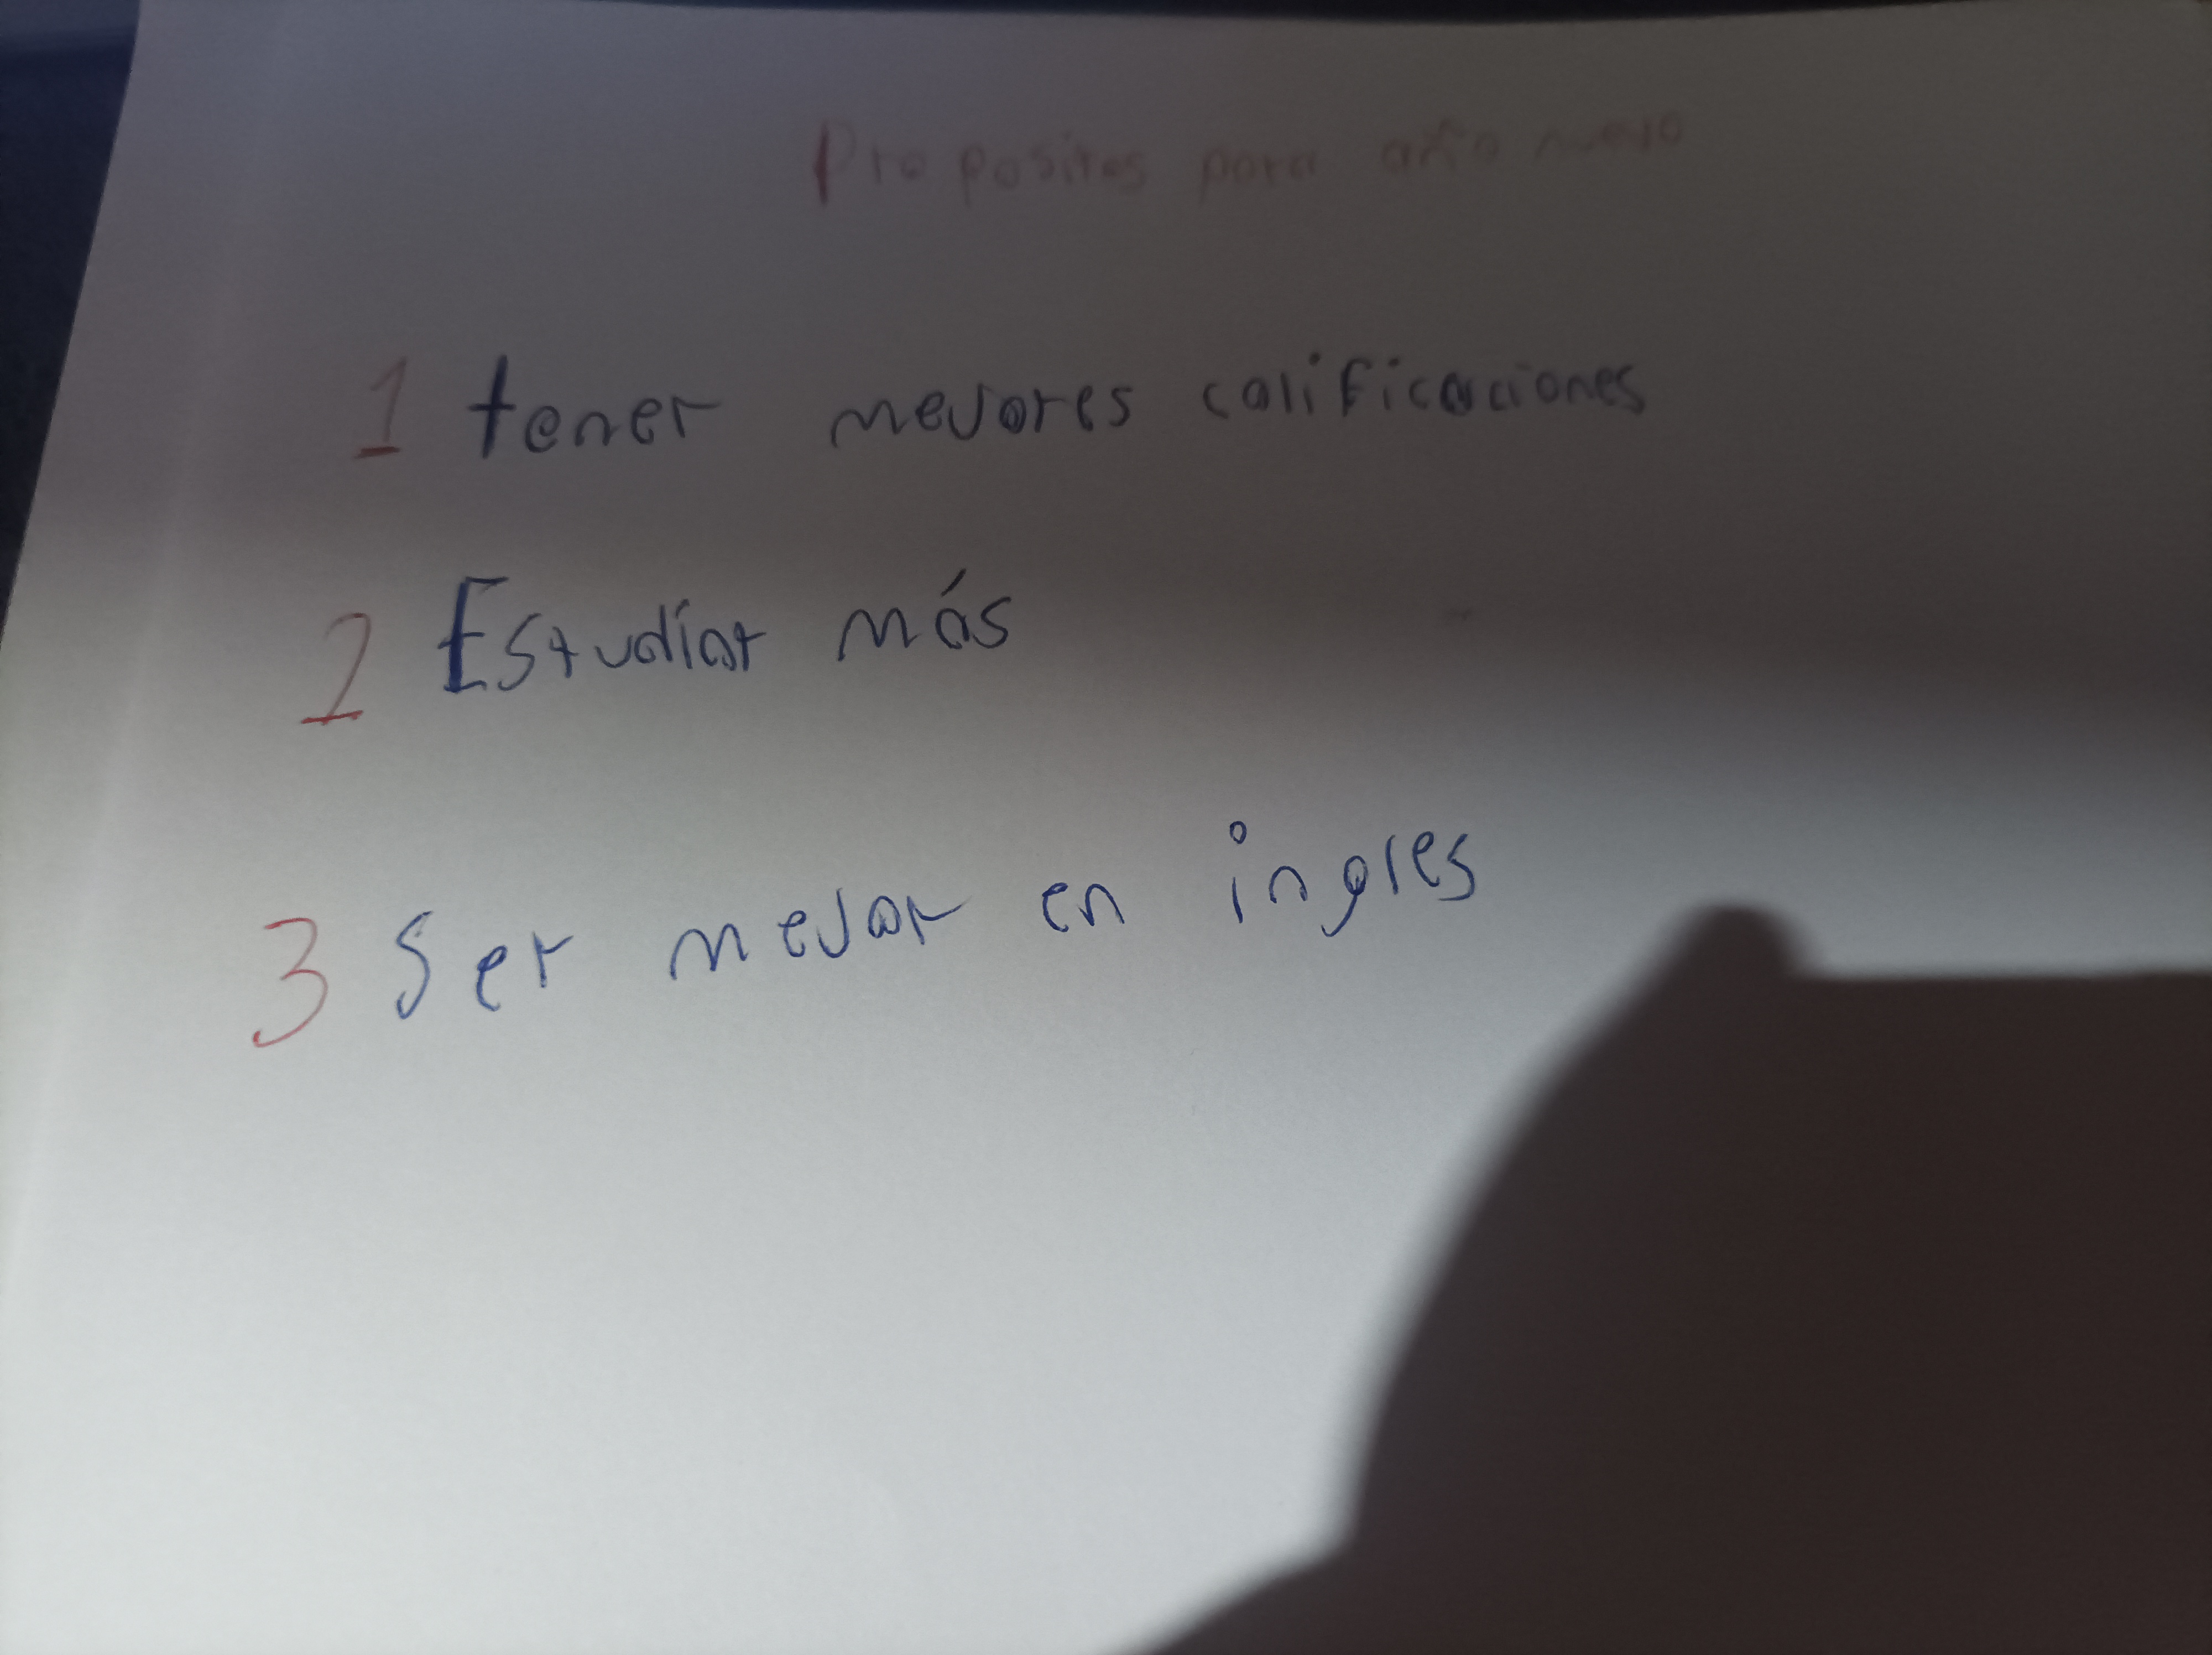 Propositos para año nuevo
1 tener mejores calificaciones
2 Estudiar más
3 Ser mejor en ingles